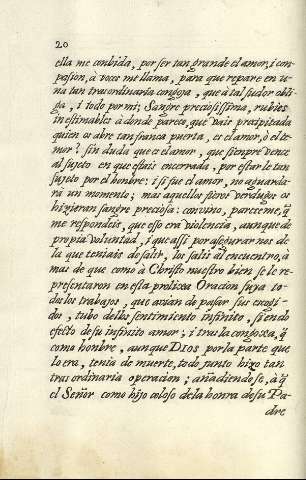 20
ella me conbida, por ser tan grande el amor, i con-
pasion, à voces me llama, para que repare en u-
na tan traordinaria congoja, que à tal sudor obli-
ga, i todo por mi; Sangre preciosissima, rubies
inestimables à donde pareçe, que vais precipitada
quien os abre tan franca puerta, es el amor, ò el te-
mor? sin duda que es el amor, que sienpre vence
al sujeto en que estais encerrada, por estarle tan
sujeto por el honbre: i si fue el amor, no aguarda-
rà un momento; mas aquellos fieros verdugos os
hizieran sangre preciosa: convino, pareceme, q̃
me respondeis, que esso era violencia, aunque de
propia voluntad, i que assi por asegurar nos de
la que teniais de salir, los salis al encuentro, à
mas de que como à Christo nuestro bien se le re-
presentaron en esta prolixa Oracion suya to-
dos los trabajos, que avian de pasar sus escogi-
dos, tubo dellos sentimiento infinito, siendo
efecto de su infinito amor; i tras la congoxa, q̃
como honbre, aunque DIOS por la parte que
lo era, tenia de muerte, todo junto hizo tan
tras ordinaria operacion; añadiendose, à q̃
el Señor como hijo celoso de la honra de su Pa-
dre